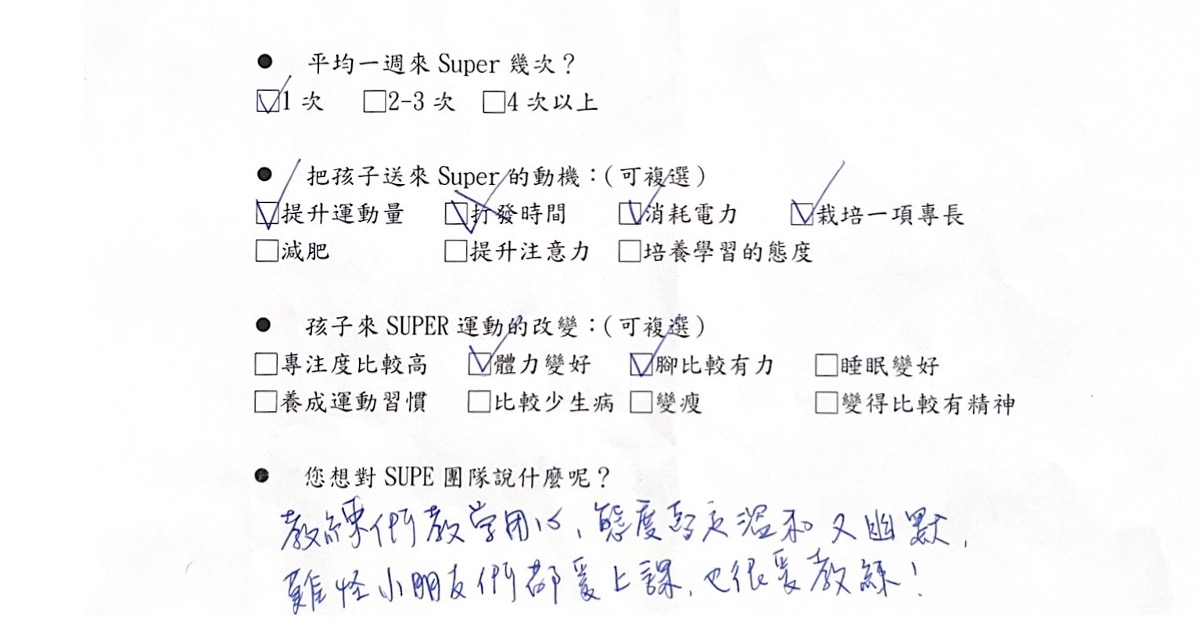 ● 平均一週來 Super 幾次？
☑1 次 □2-3 次 □4 次以上
● 把孩子送來 Super 的動機：(可複選)
☑提升運動量 ☑打發時間 ☑消耗電力 ☑栽培一項專長
□減肥 □提升注意力 □培養學習的態度
● 孩子來 SUPER 運動的改變：(可複選)
□專注度比較高 ☑體力變好 ☑腳比較有力 □睡眠變好
□養成運動習慣 □比較少生病 □變瘦 □變得比較有精神
● 您想對 SUPE 團隊說什麼呢？
教練們教学用心，態度 溫和又幽默，
難怪小朋友們都愛上課，也很愛教練！